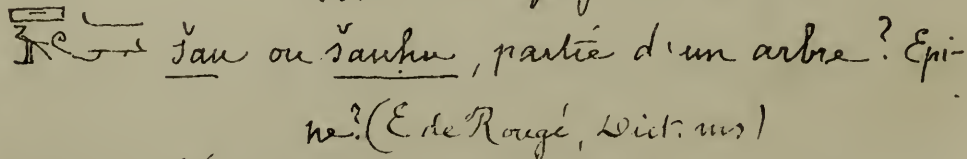 šau ou šauhu, partie d'un arbre? Epi-
ne? (E de Rougé, Dict. ms)